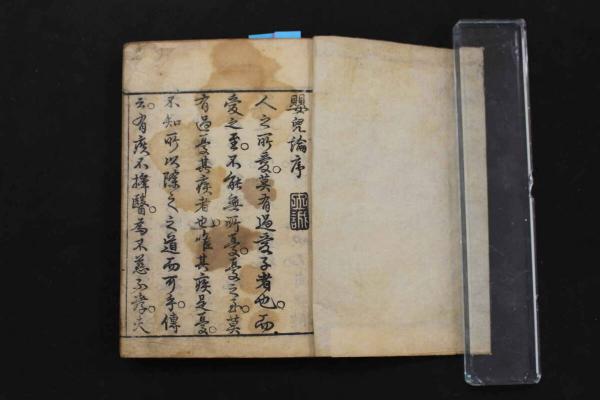 嬰兒論序
人之所愛莫有過愛子者也而
愛之至不能無所憂憂之至莫
有過憂其疾者也唯其疾是憂
不知所以除之之道而可乎傳
云有疾不擇醫為不慈不孝夫